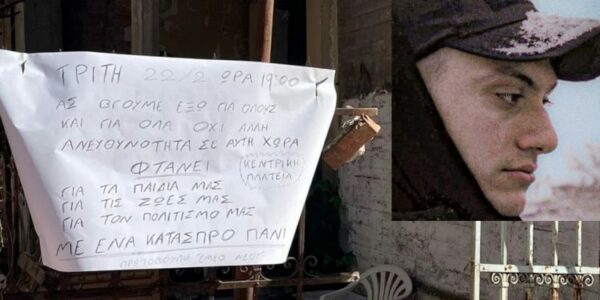 ΤΡΙΤΗ 22/2 ΩΡΑ 19:00
ΑΣ ΒΓΟΥΜΕ ΕΞΩ ΓΙΑ ΟΛΟΥΣ
ΚΑΙ ΓΙΑ ΟΛΑ ΟΧΙ ΑΛΛΗ
ΑΝΕΥΘΥΝΟΤΗΤΑ ΣΕ ΑΥΤΗ ΧΩΡΑ
ΦΤΑΝΕΙ
(ΚΕΝΤΡΙΚΗ
ΠΛΑΤΕΙΑ)
ΓΙΑ ΤΑ ΠΑΙΔΙΑ ΜΑΣ
ΓΙΑ ΤΙΣ ΖΩΕΣ ΜΑΣ
ΓΙΑ ΤΟΝ ΠΟΛΙΤΙΣΜΟ ΜΑΣ
ΜΕ ΕΝΑ ΚΑΤΑΣΠΡΟ ΠΑΝΙ
ΠΡΩΤΟΒΟΥΛΙΑ